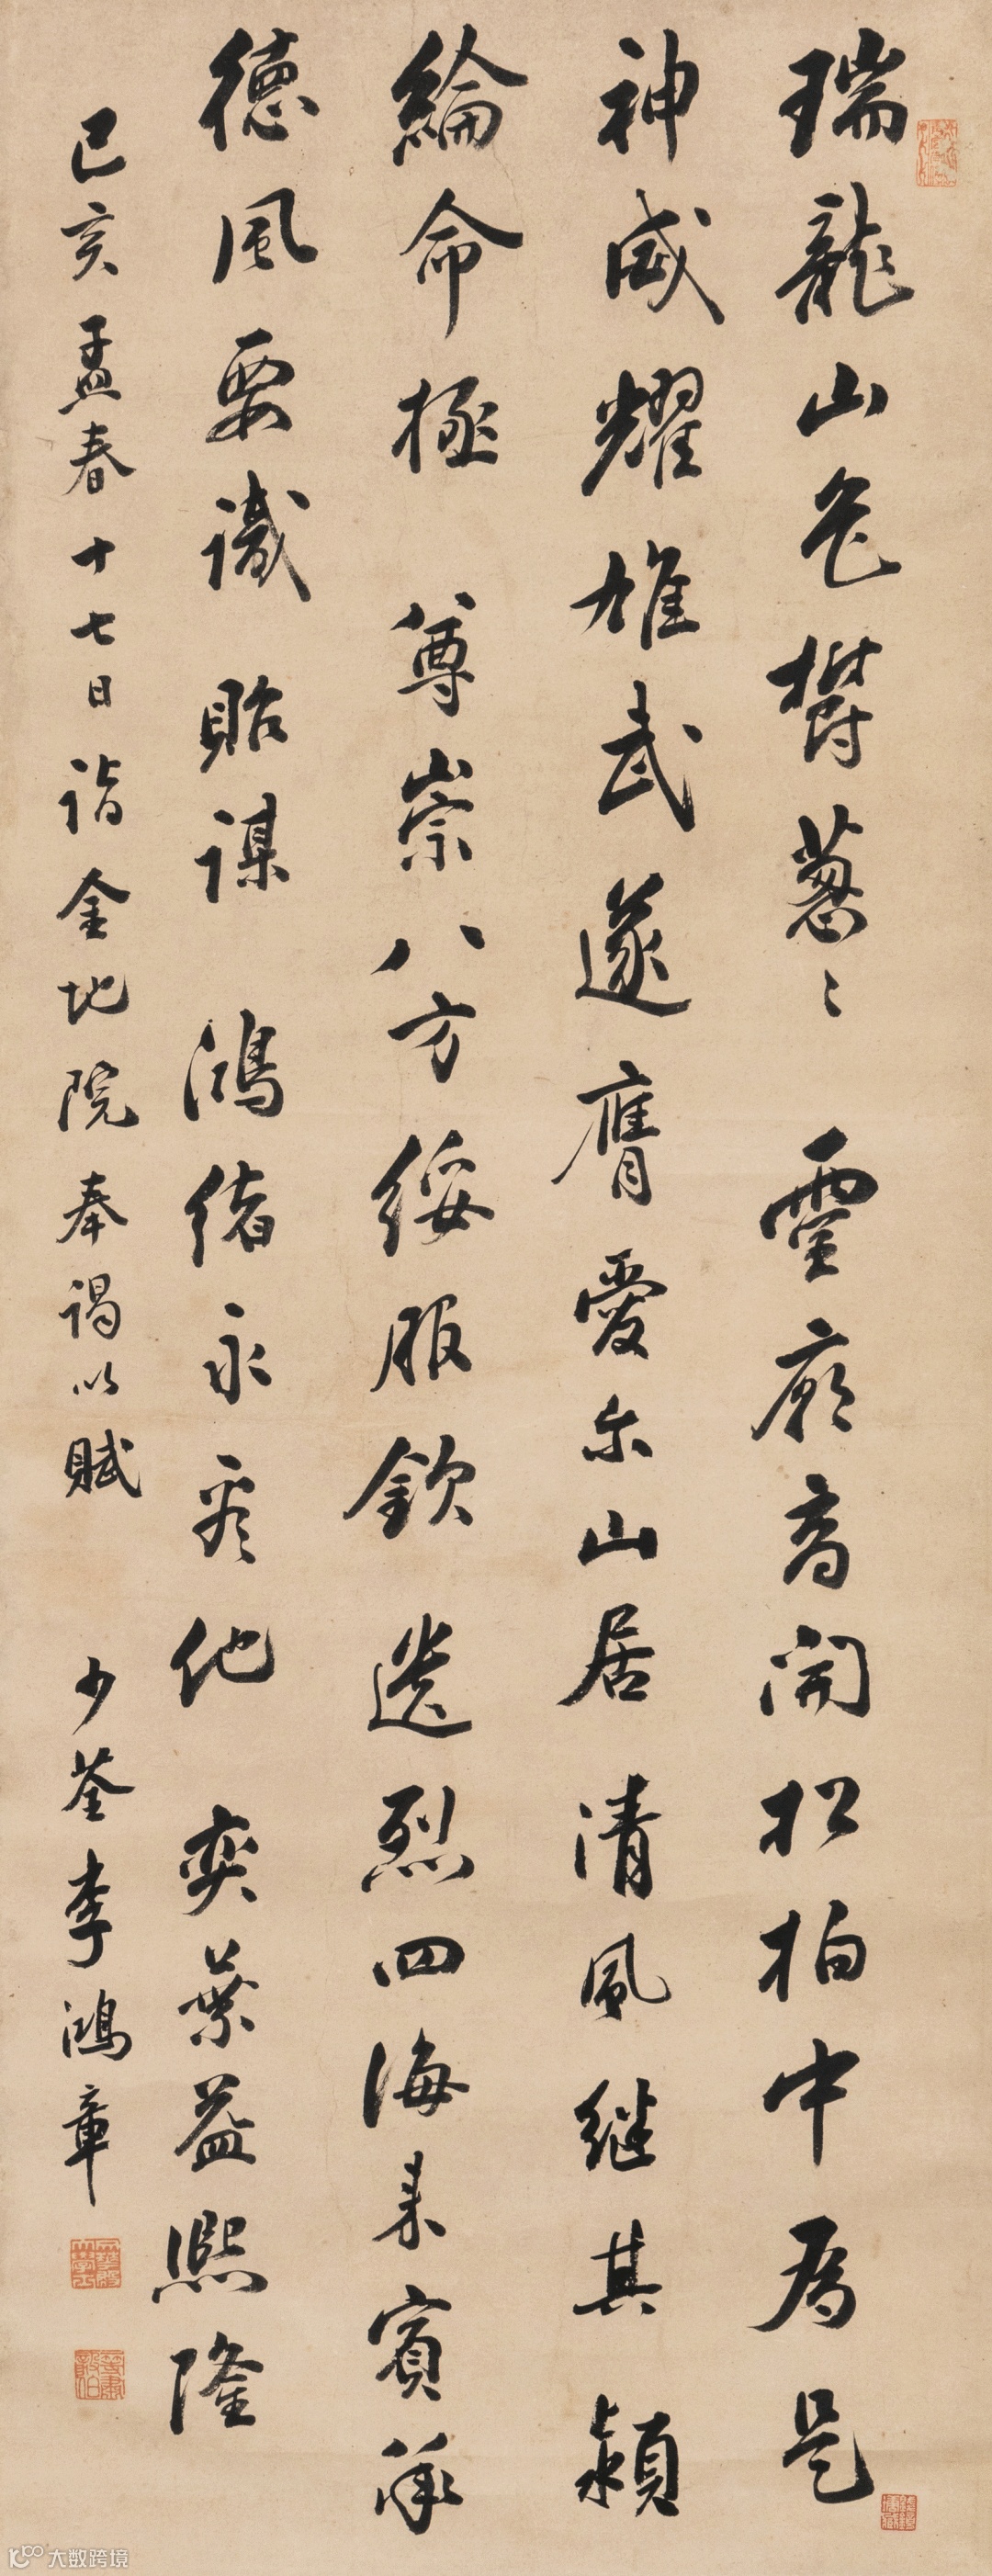 瑞龍山色欝葱〻靈廟高開松柏中為是
神威耀雄武遂膺愛尔山居清風継其穎
綸命極尊崇八方綏服欽遺烈四海来賓承
徳風要識貽謀鴻緒永無他奕葉益熙隆
己亥孟春十七日詣金地院奉謁以賦少荃李鴻章
大数跨境